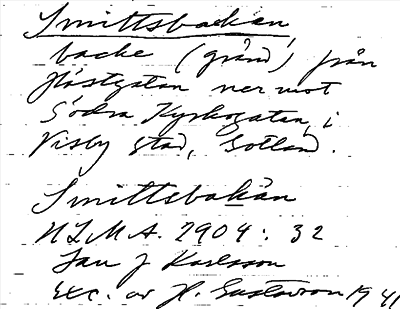 Smittsbackan,
backe (gränd) från
Hästgatan ner mot
Södra Kyrkogatan, i
Visby stad, Gotland.
Smittsbakàn
ULMA. 2904: 32
Jan J Karlsson
Exc. av H. Gustavson 1941